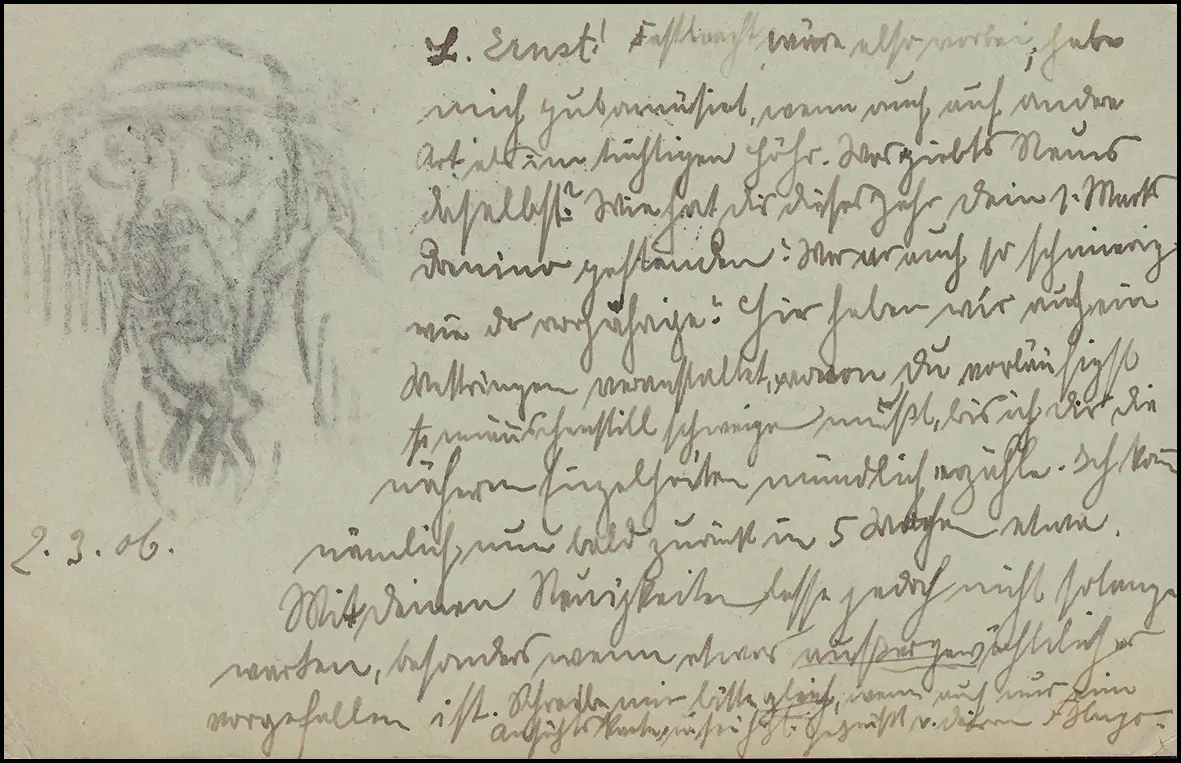 L. Ernst! Fastnacht wäre also vorbei, habe
mich gut amüsiert, wenn auch auf andere
Art als im tüchtigen Höhr. Was giebts Neues
daselbst? Wie hat dir dieses Jahr dein 1. Mark
Domino gestanden? War er auch so schmierig
wie der vorjährige? Hier haben wir auch ein
veranstaltet, wovon Du vorläufigst
mäuschenstill schweigen mußt, bis ich dir die
näheren Einzelheiten mündlich erzähle. Ich kom̅
2.3.06.
nämlich nun bald zurück in 5 Wochen etwa.
Mit deinen Neuigkeiten lasse jedoch nicht solange
warten, besonders wenn etwas außergewöhnliches
vorgefallen ist. Schreibe mir bitte gleich, wenn auch nur eine
Ansichtskarte, gegrüßt v. deinem